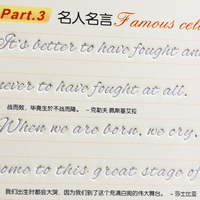 Part.3 名人名言 Famous cele
It's better to have fought and
战而败，毕竟生於不战而降。 - 克劳夫 佩斯基艾拉
never to have fought at all.
When we are born, we cry.
come to this great stage of
我们出生时都会大哭，因为我们到了这个充满白痴的伟大舞台。 - 莎士比亚